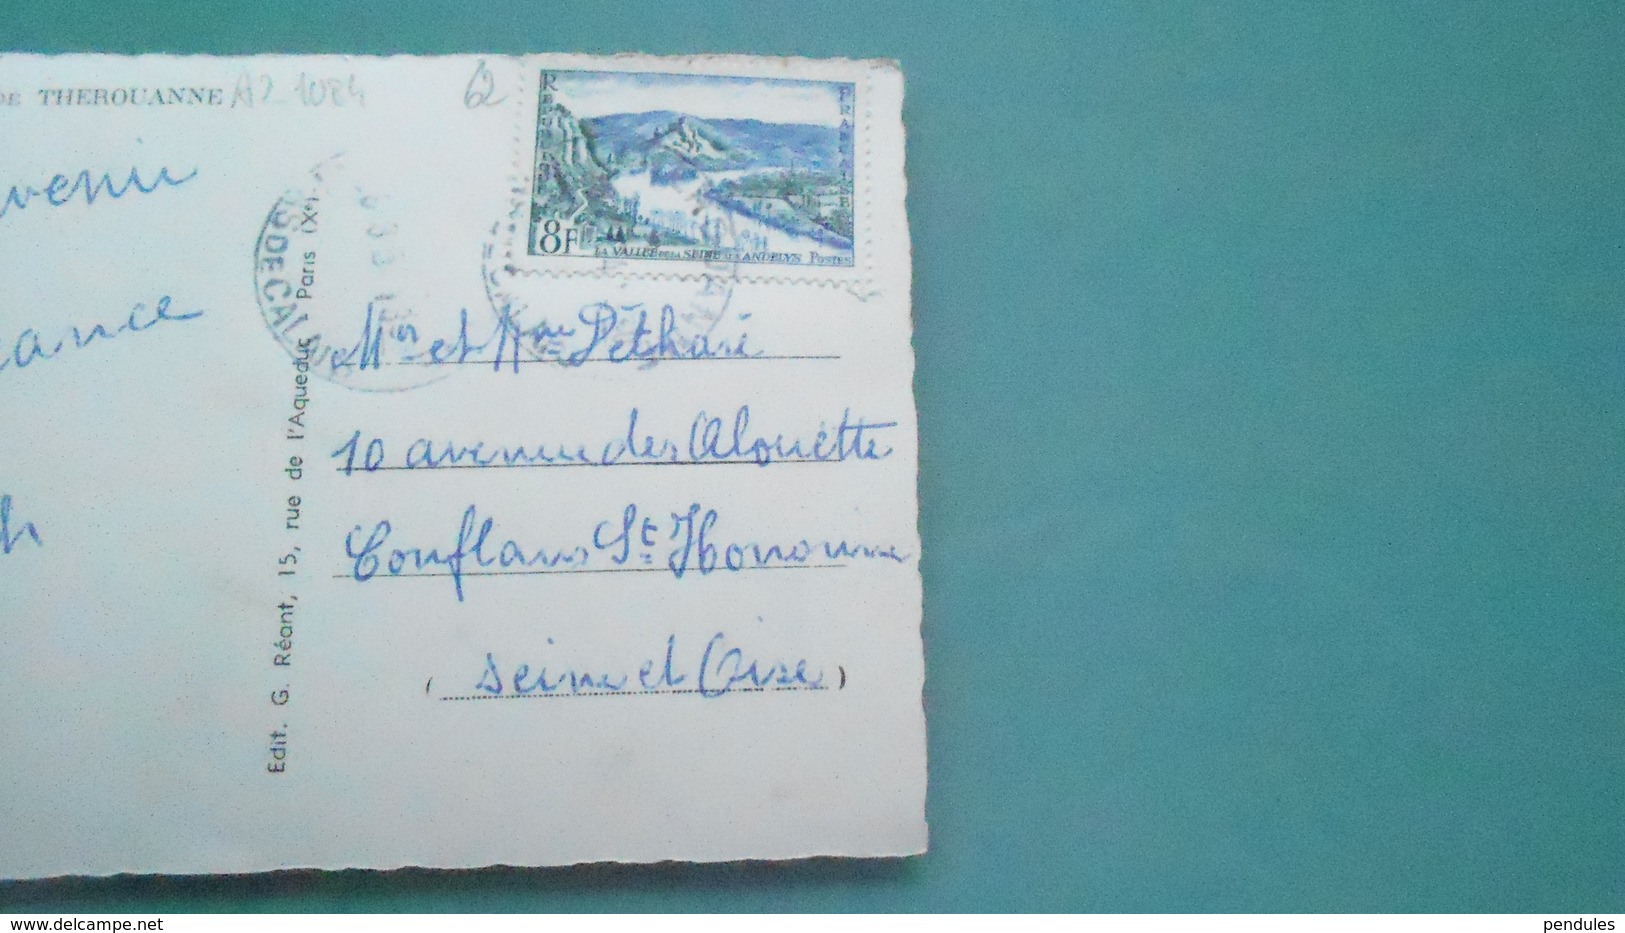 DE THEROUANNE
A2_1084
62
REPUBLIQUE
FRANCAISE
8F
LA VALLEE DE LA SEINE AUX ANDELYS POSTES
PAS DE CALAIS
Mr et Mme Péthoré
10 avenue des Alouette
Conflans St Honorine
(Seine et Oise)
Edit. G. Réant, 15, rue de l'Aqueduc, Paris IXe
Delcampe.net
pendules